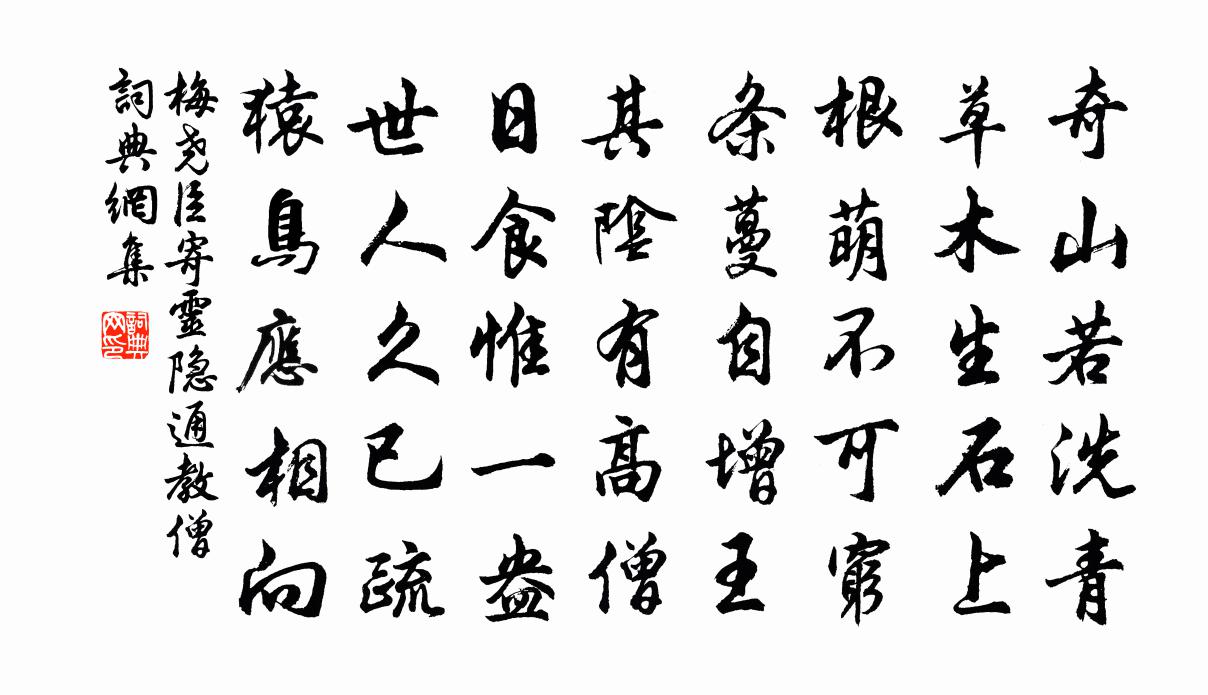 奇山若洗青
草木生石上
根萌不可窮
条蔓自增王
其陰有高僧
日食惟一盎
世人久已疏
猿鳥應相向
梅尧臣寄靈隐通教僧
詞典網集
詞典网印